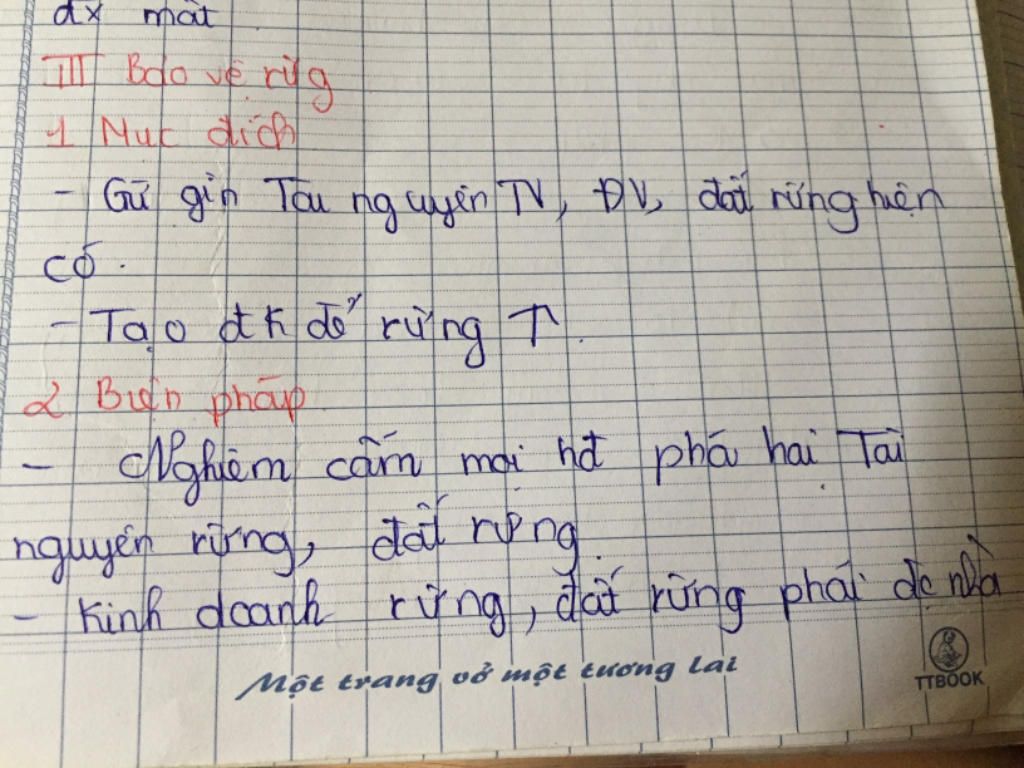 đx mất
III Bảo vệ rừg
1 Mục đích
- Gữ gìn Tài nguyên TV, ĐV, đất rừng hiện
có.
- Tạo đk để rừng ↑.
2 Biện pháp
- Nghiêm cấm mọi hđ phá hại Tài
nguyên rừng, đất rừng.
- Kinh doanh rừng, đất rừng phải đc nhà
Một trang vở một tương lai
TTBOOK